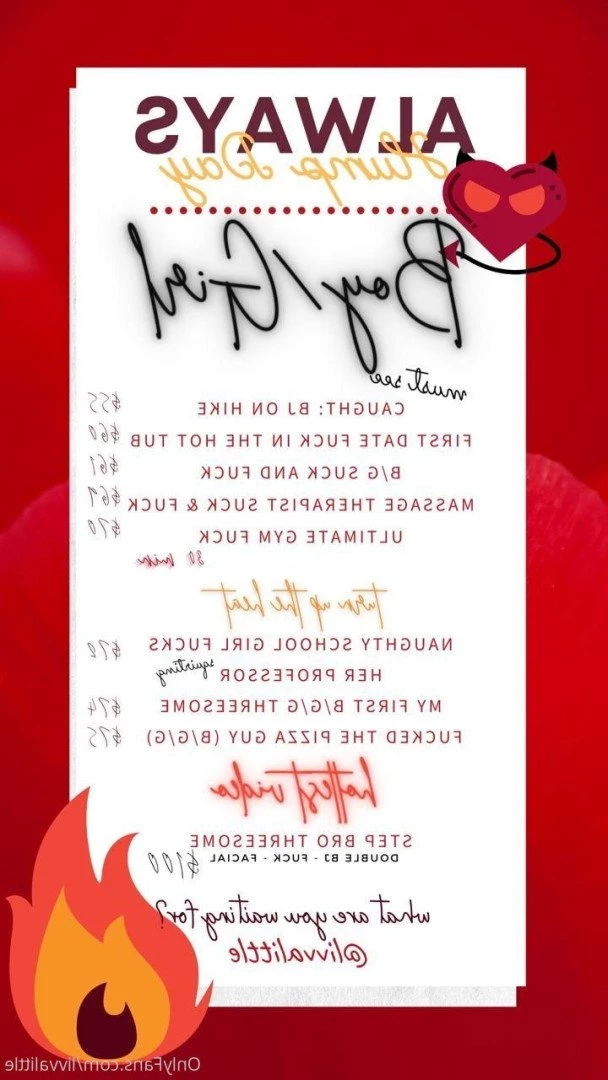 ALWAYS
Hump Day
Boy/Girl
must see
CAUGHT: BJ ON HIKE $55
FIRST DATE FUCK IN THE HOT TUB $60
B/G SUCK AND FUCK
MASSAGE THERAPIST SUCK & FUCK
ULTIMATE GYM FUCK $70
30 min
turn up the heat
NAUGHTY SCHOOL GIRL FUCKS
HER PROFESSOR squirting
MY FIRST B/G/G THREESOME $74
FUCKED THE PIZZA GUY (B/G/G) $75
hottest video
STEP BRO THREESOME
DOUBLE BJ - FUCK - FACIAL $100
what are you waiting for?
@livvalittle
OnlyFans.com/livvalittle